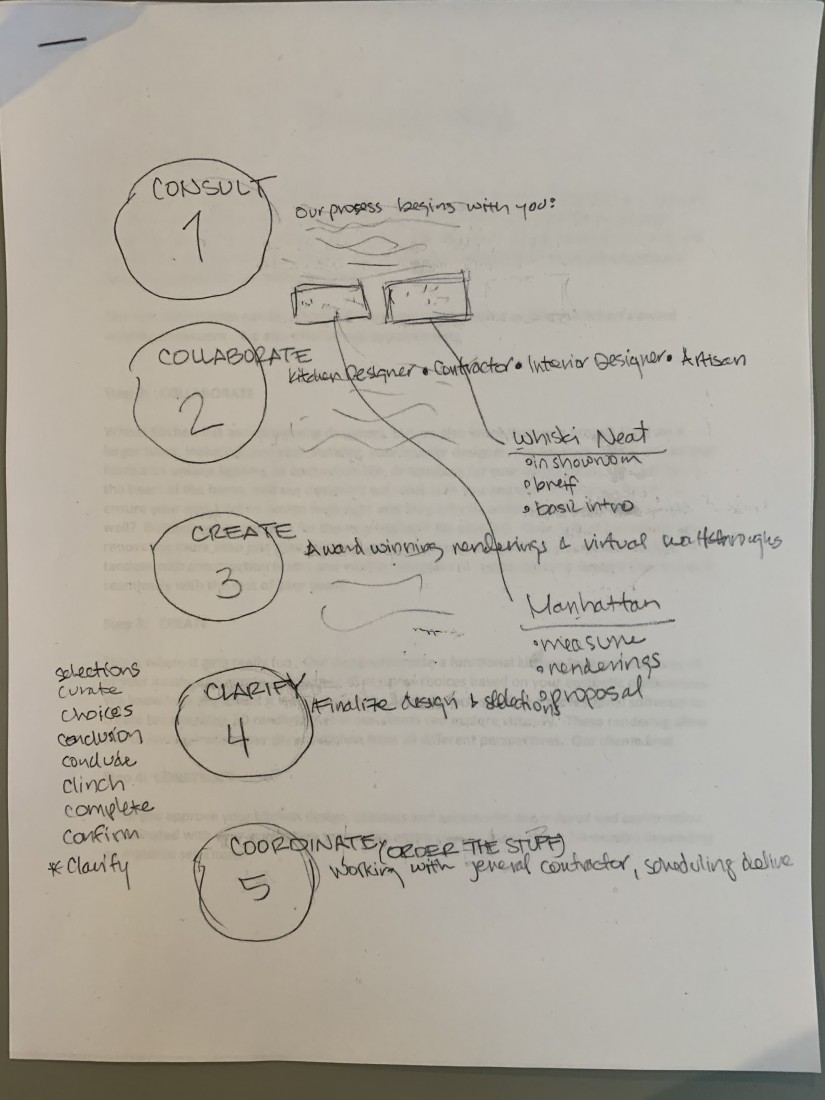 CONSULT
1
Our process begins with you:
COLLABORATE
2
Kitchen Designer • Contractor • Interior Designer • Artisan
Whiski Neat
• in showroom
• breif
• basic intro
CREATE
3
Award winning renderings & virtual walkthroughs
Manhattan
• measure
• renderings
• proposal
CLARIFY
4
Finalize design & selections
selections
curate
choices
conclusion
conclude
clinch
complete
confirm
* Clarify
COORDINATE (ORDER THE STUFF)
5
Working with general contractor, scheduling delive